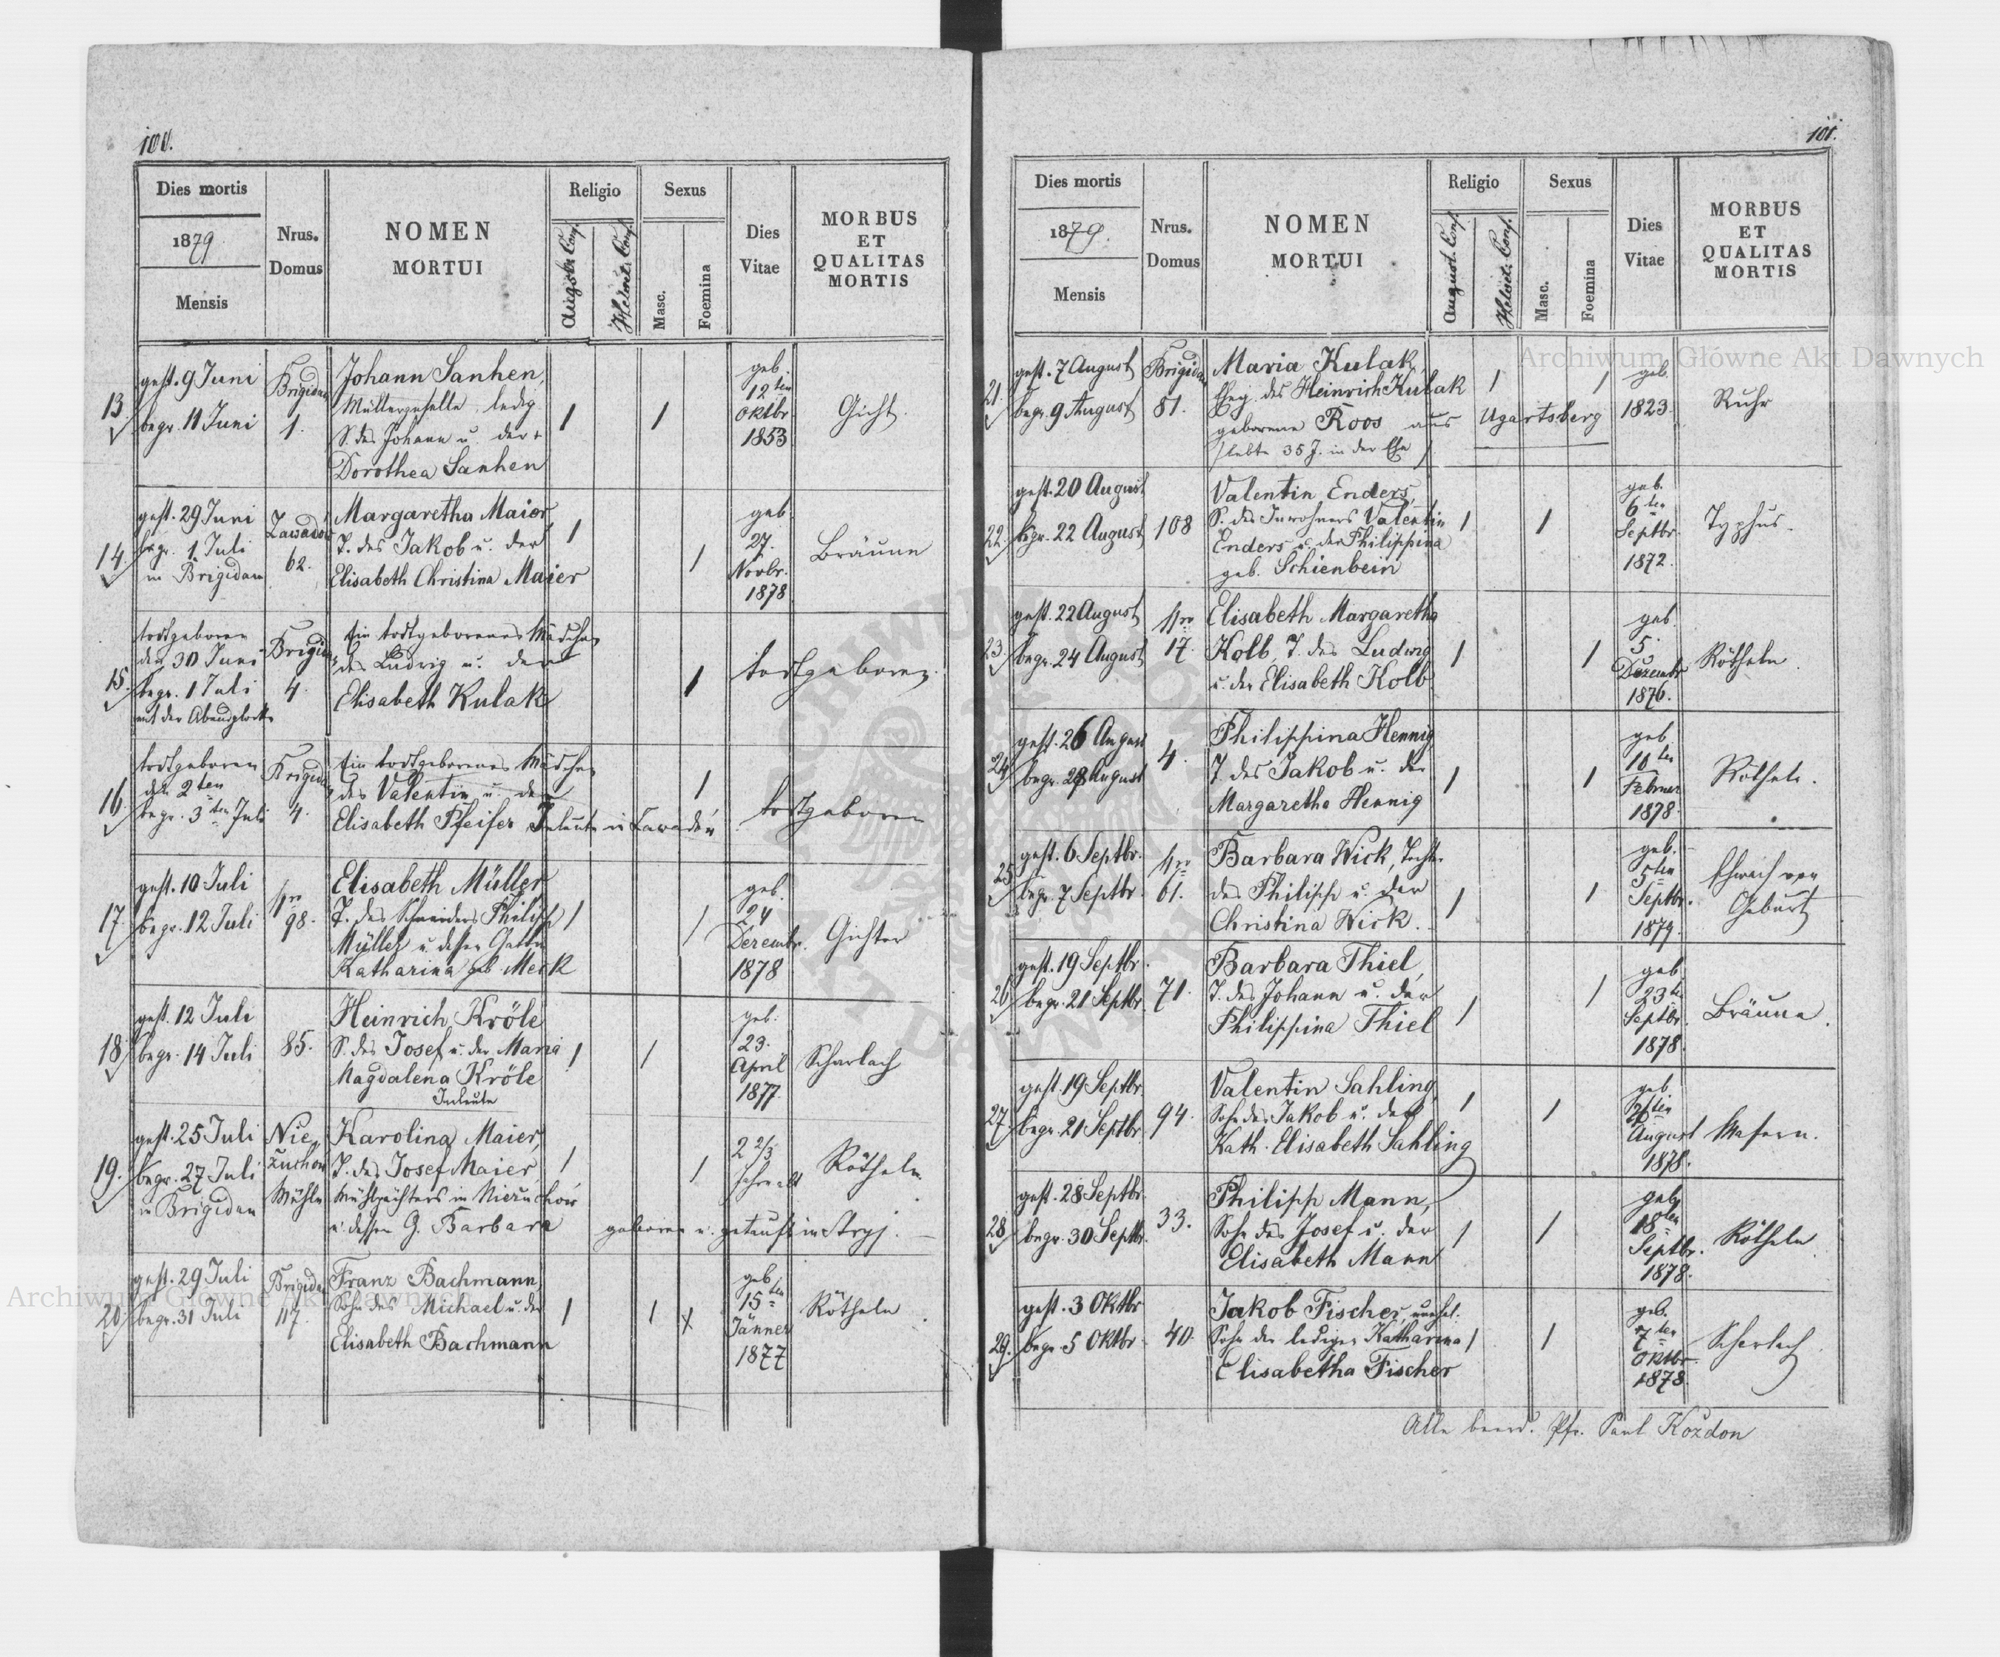 100.
Dies mortis
1879
Mensis
Nrus.
Domus
NOMEN
MORTUI
Religio
Augsb. Conf.
Helvet. Conf.
Sexus
Masc.
Foemina
Dies
Vitae
MORBUS
ET
QUALITAS
MORTIS
13.
gest. 9 Juni
begr. 11 Juni
Brigidau
1.
Johann Sanhen,
Müllergeselle, ledig
S. des Johann u. der
Dorothea Sanhen
1
1
geb.
12ten
Oktbr
1853
Gicht.
14.
gest. 29 Juni
begr. 1. Juli
in Brigidau
62.
Margaretha Maier
T. des Jakob u. der
Elisabeth Christina Maier
1
1
geb.
27.
Novbr.
1878
Bräune
15.
todtgeboren
den 30 Juni
begr. 1 Juli
mit der Abendglocke
Brigidau
4.
Ein todtgeborenes Mädchen
des Ludwig u. der
Elisabeth Kulak
1
todtgeboren.
16.
todtgeboren
den 2ten
begr. 3ten Juli
Brigidau
4.
Ein todtgeborenes Mädchen
des Valentin u. der
Elisabeth Pfeifer Inleute in
1
todtgeboren
17.
gest. 10 Juli
begr. 12 Juli
98.
Elisabeth Müller
T. des Schneiders Philipp
Müller u. dessen Gattin
Katharina geb. Merk
1
1
geb.
24
Dezembr.
1878
Gichter
18.
gest. 12 Juli
begr. 14 Juli
85.
Heinrich Kröle
S. des Josef u. der Maria
Magdalena Kröle
Inleute
1
1
geb.
23.
April
1877.
Scharlach
19.
gest. 25 Juli
begr. 27 Juli
in Brigidau
Nie
Mühle
Karolina Maier,
T. des Josef Maier,
Mühlpächters in
u. dessen G. Barbara
geboren u. getauft in Stryj.
1
1
2 2/3
Jahre alt
Rötheln
20.
gest. 29 Juli
begr. 31 Juli
Brigidau
117.
Franz Bachmann
Sohn des Michael u. der
Elisabeth Bachmann
1
1
x
geb
15ten
Jänner
1877
Rötheln
101.
Dies mortis
1879.
Mensis
Nrus.
Domus
NOMEN
MORTUI
Religio
August. Conf.
Helvet. Conf.
Sexus
Masc.
Foemina
Dies
Vitae
MORBUS
ET
QUALITAS
MORTIS
21.
gest. 7 August
begr. 9 August
Brigidau
81.
Maria Kulak,
Eheg. des Heinrich Kulak
geborene Roos aus Ugartsberg
/lebte 35 J. in der Ehe/
1
1
geb.
1823.
Ruhr
22.
gest. 20 August
bgr. 22 August
108
Valentin Enders,
S. des Inwohners Valentin
Enders u. der Philippina
geb. Schienbein
1
1
geb.
6ten
Septbr.
1872.
Typhus.
23.
gest. 22 August
begr. 24 August
17.
Elisabeth Margaretha
Kolb, T. des Ludwig
u. der Elisabeth Kolb
1
1
geb.
5.
Dezembr
1876.
Rötheln.
24.
gest. 26 August
begr. 28 August
4.
Philippina Hennig
T. des Jakob u. der
Margaretha Hennig
1
1
geb
10ten
Februar
1878.
Rötheln.
25.
gest. 6 Septbr.
begr. 7 Septbr.
61.
Barbara Wick, Tochter
des Philipp u. der
Christina Wick.
1
1
geb.
5ten
Septbr.
1879.
Schwach von
Geburt
26.
gest. 19 Septbr.
begr. 21 Septbr.
71.
Barbara Thiel,
T. des Johann u. der
Philippina Thiel
1
1
geb
23ten
Septbr.
1878.
Bräune.
27.
gest. 19 Septbr.
begr. 21 Septbr.
94.
Valentin Sahling,
Sohn des Jakob u. der
Kath. Elisabeth Sahling
1
1
geb
August
1878.
Masern.
28.
gest. 28 Septbr.
begr. 30 Septbr.
33.
Philipp Mann,
Sohn des Josef u. der
Elisabeth Mann
1
1
geb.
18ten
Septbr.
1878.
Rötheln
29.
gest. 3 Oktbr
begr. 5 Oktbr.
40.
Jakob Fischer, unehel.
Sohn der ledigen Katharina
Elisabetha Fischer
1
1
geb.
7ten
Oktbr.
1878.
Scharlach.
Alle beerd. Pfr. Paul Kozdon
Archiwum Główne Akt Dawnych
Archiwum Główne Akt Dawnych